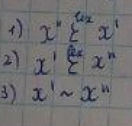 1) x" ≿ˡᵉˣ x'
2) x' ≿ˡᵉˣ x"
3) x' ~ x"